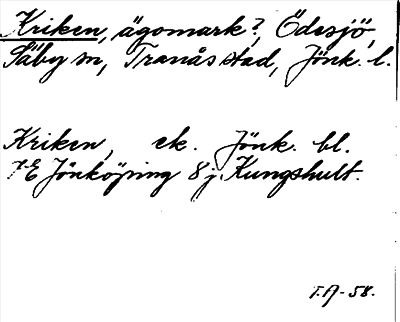 Kriken, ägomark?, Ödesjö,
Säby sn, Tranås stad, Jönk. l.
Kriken, ek. Jönk. bl.
7E Jönköping 8 j. Kungshult.
T.A-58.